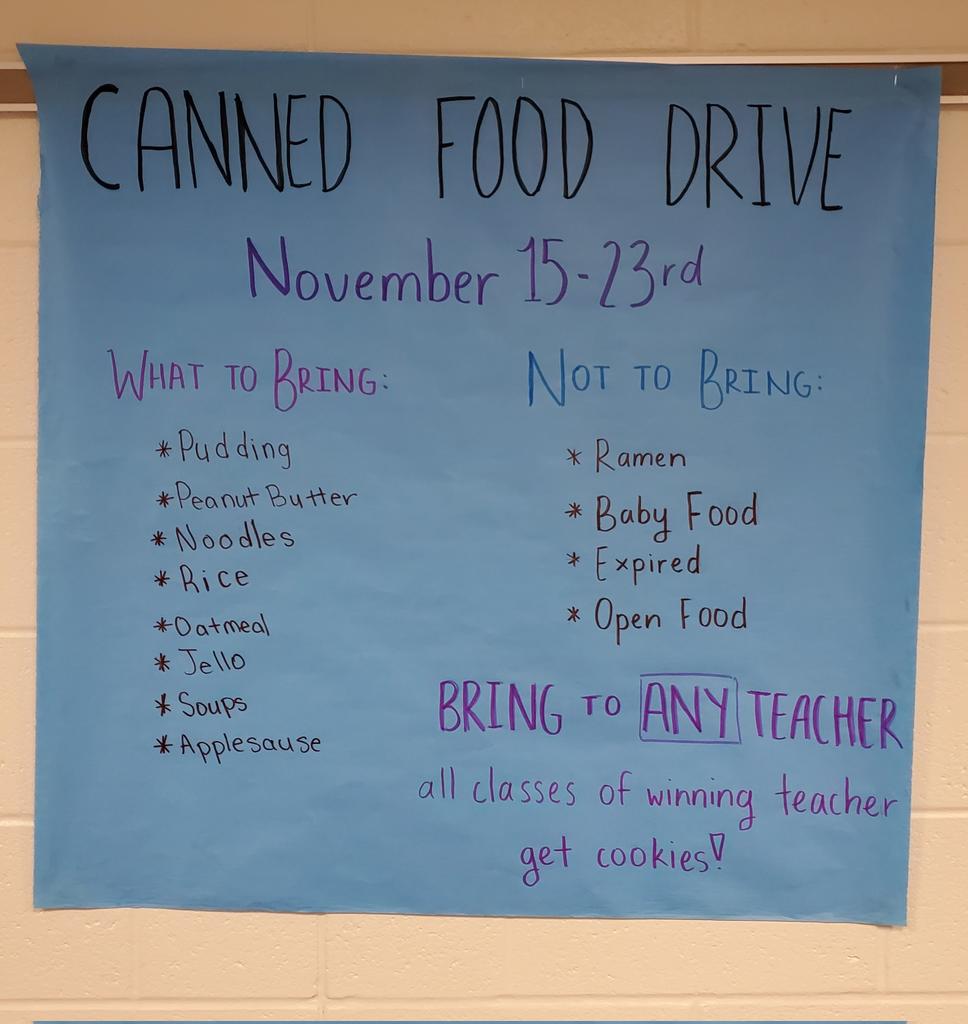 CANNED FOOD DRIVE
November 15-23rd
WHAT TO BRING:
* Pudding
* Peanut Butter
* Noodles
* Rice
* Oatmeal
* Jello
* Soups
* Applesause
NOT TO BRING:
* Ramen
* Baby Food
* Expired
* Open Food
BRING TO ANY TEACHER
all classes of winning teacher
get cookies!